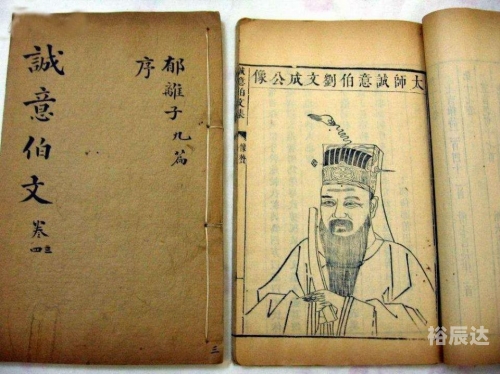 郁離子九篇
序
誠意伯文 卷
三
太師誠意伯劉文成公像
誠意伯文集
裕辰达